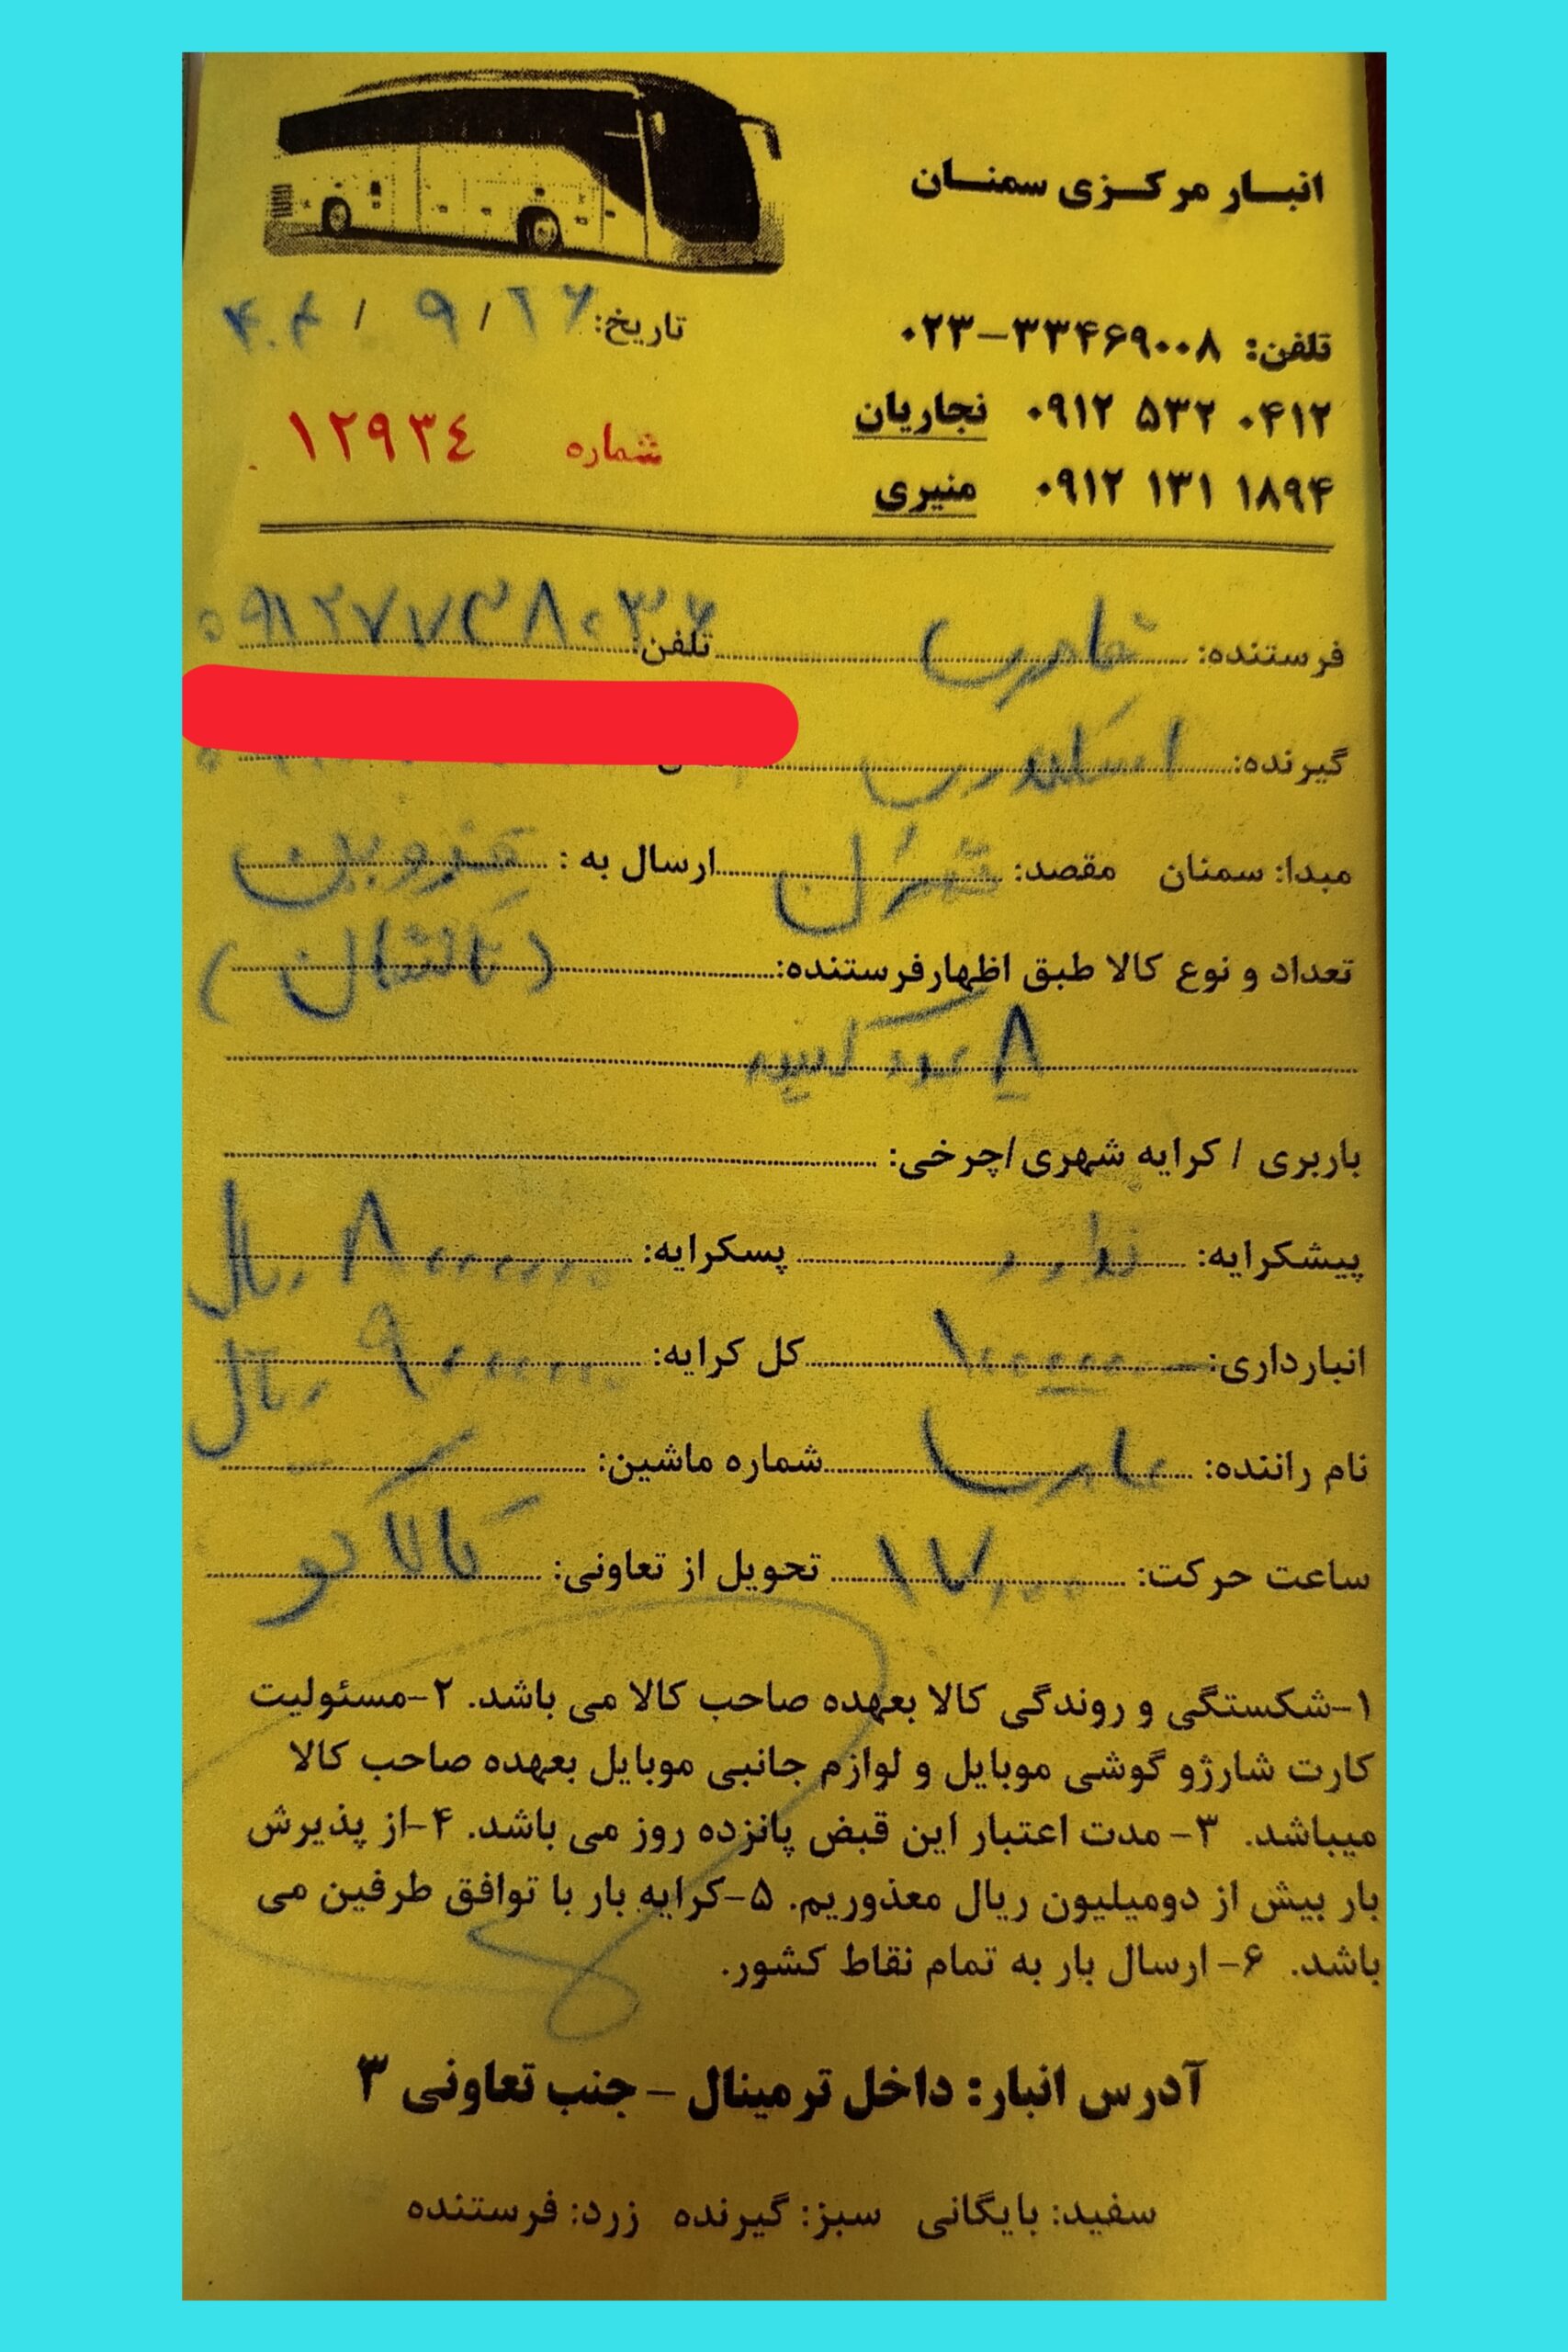 انبار مرکزی سمنان
تلفن: ۰۲۳-۳۳۴۶۹۰۰۸
۰۹۱۲ ۵۳۲ ۰۴۱۲ نجاریان
۰۹۱۲ ۱۳۱ ۱۸۹۴ منیری
تاریخ: ۲۶ / ۹ / ۴۰۴
شماره ۱۲۹۳٤
فرستنده: تلفن:
گیرنده: اسکندری
مبدا: سمنان مقصد: تهران ارسال به: قزوین
تعداد و نوع کالا طبق اظهارفرستنده: (تالشان)
۸ عدد کیسه
باربری / کرایه شهری/چرخی:
پیشکرایه: ندارد پسکرایه: ۸۰۰۰۰۰۰ ریال
انبارداری: ۱۰۰۰۰۰۰ کل کرایه: ۹۰۰۰۰۰۰ ریال
نام راننده: شماره ماشین:
ساعت حرکت: ۱۷:۰۰ تحویل از تعاونی:
۱-شکستگی و روندگی کالا بعهده صاحب کالا می باشد. ۲-مسئولیت
کارت شارژو گوشی موبایل و لوازم جانبی موبایل بعهده صاحب کالا
میباشد. ۳- مدت اعتبار این قبض پانزده روز می باشد. ۴-از پذیرش
بار بیش از دومیلیون ریال معذوریم. ۵-کرایه بار با توافق طرفین می
باشد. ۶- ارسال بار به تمام نقاط کشور.
آدرس انبار: داخل ترمینال - جنب تعاونی ۳
سفید: بایگانی سبز: گیرنده زرد: فرستنده